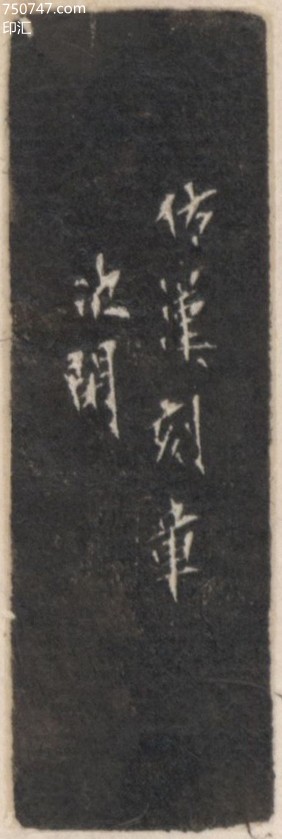 750747.com
印汇
仿漢刻章
次閑